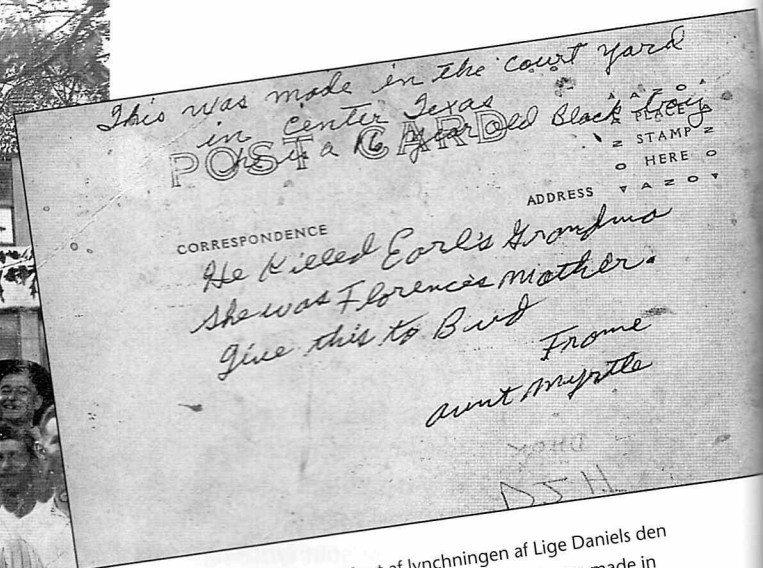 This was made in the court yard
in Center Texas
he is a 16 year old Black boy
POST CARD
PLACE
STAMP
HERE
CORRESPONDENCE
ADDRESS
He Killed Earl's Grandma
She was Florence's mother.
Give this to Bud
From
aunt Myrtle
af lynchningen af Lige Daniels den
made in